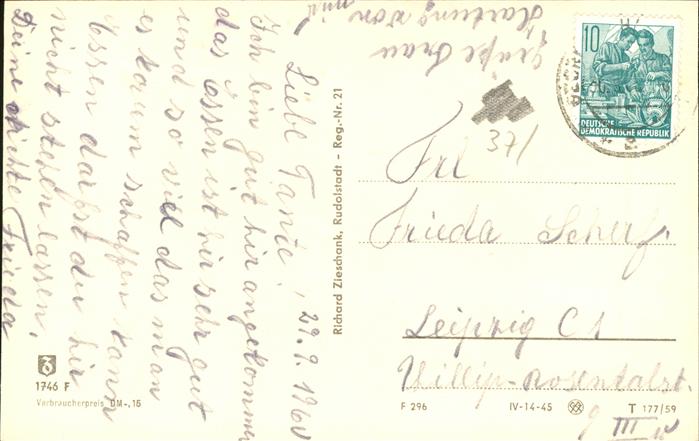 Liebe Tante! 29.9.1960
Ich bin gut hir angekommen
das Essen ist hir sehr gut
und so viel das man
es kaum schaffen kann
Essen darbst du hir
nicht stehen lassen.
Deine Nichte Frieda
Grüße Frau
Hartung von
mir
1746 F
Verbraucherpreis DM -,15
Richard Zieschank, Rudolstadt - Reg.-Nr. 21
10
DEUTSCHE
DEMOKRATISCHE REPUBLIK
37/
Frl
Frieda Scherf.
Leipzig C1
Willip-Rosentalst.
9 III
F 296 IV-14-45 T 177/59